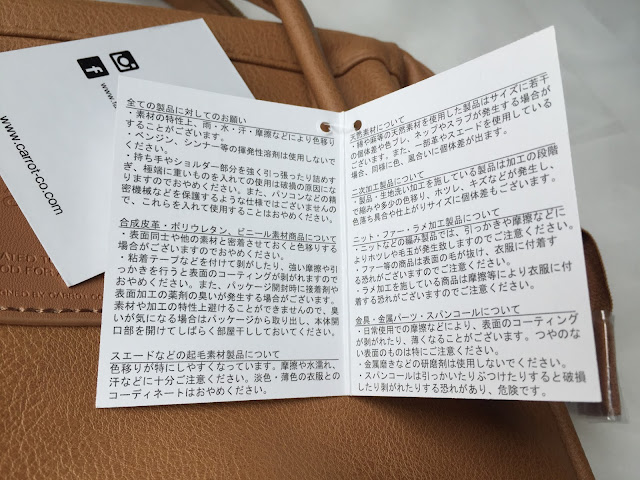 www.carrot-co.com
全ての製品に対してのお願い
・素材の特性上、雨・水・汗・摩擦などにより色移り
することがございます。
・ベンジン、シンナー等の揮発性溶剤は使用しないで
ください。
・持ち手やショルダー部分を強く引っ張ったり詰めす
ぎ、極端に重いものを入れての使用は破損の原因にな
りますのでおやめください。また、パソコンなどの精
密機械などを保護するような仕様ではございませんの
で、これらを入れて使用することはおやめください。
合成皮革・ポリウレタン、ビニール素材商品について
・表面同士や他の素材と密着させておくと色移りする
場合がございますのでおやめください。
・粘着テープなどを付けて剥がしたり、強い摩擦や引
っかきを行うと表面のコーティングが剥がれますので
おやめください。また、パッケージ開封時に接着剤や
表面加工の薬剤の臭いが発生する場合がございます。
素材や加工の特性上避けることができませんので、臭
いが気になる場合はパッケージから取り出し、本体開
口部を開けてしばらく部屋干ししておいてください。
スエードなどの起毛素材製品について
色移りが特にしやすくなっています。摩擦や水濡れ、
汗などに十分ご注意ください。淡色・薄色の衣服との
コーディネートはおやめください。
天然素材について
・綿や麻等の天然素材を使用した製品はサイズに若干
の個体差や色ブレ、ネップやスラブが発生する場合が
ございます。また、一部革やスエードを使用している
場合、同様に色、風合いに個体差が出ます。
二次加工製品について
・製品・生地洗い加工を施している製品は加工の段階
で縮みや多少の色移り、ホツレ、キズなどが発生し、
色落ち具合や仕上がりサイズに個体差もございます。
ニット・ファー・ラメ加工製品について
・ニットなどの編み製品では、引っかきや摩擦などに
よりホツレや毛玉が発生致しますのでご注意ください。
・ファー等の商品は表面の毛が抜け、衣服に付着す
る恐れがございますのでご注意ください。
・ラメ加工を施した商品は摩擦等により衣服に付
着する恐れがございますのでご注意ください。
金具・金属パーツ・スパンコールについて
・日常使用での摩擦などにより、表面のコーティング
が剥がれたり、薄くなることがございます。つやのな
い表面のものは特にご注意ください。
・金属磨きなどの研磨剤は使用しないでください。
・スパンコールは引っかいたりぶつけたりすると破損
したり剥がれたりする恐れがあり、危険です。